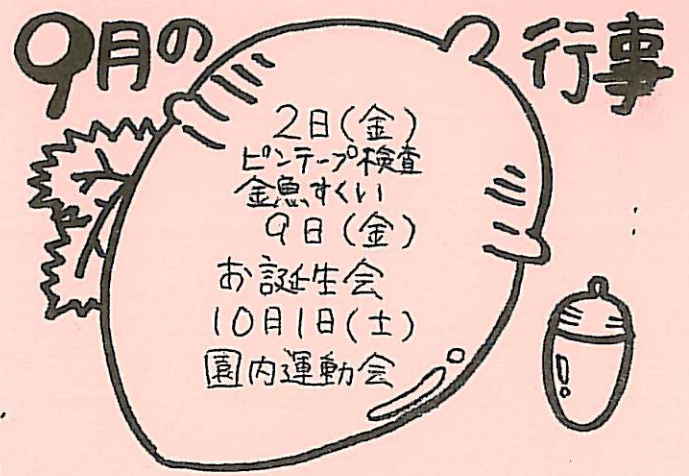 9月の行事
2日(金)
ピンテープ検査
金魚すくい
9日(金)
お誕生会
10月1日(土)
園内運動会